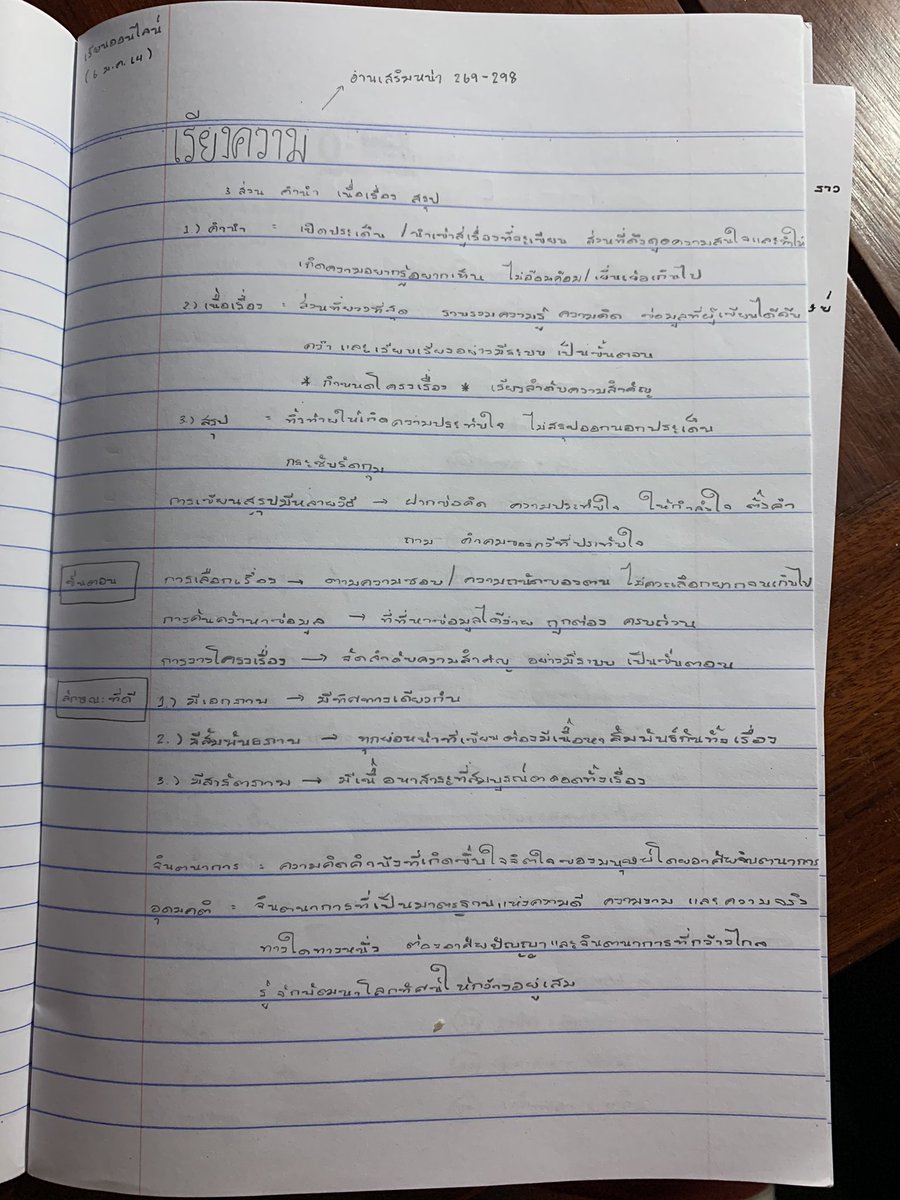 เรียนออนไลน์
(6 ม.ค. 64)
อ่านเสริมหน้า 269-298
เรียงความ
3 ส่วน คำนำ เนื้อเรื่อง สรุป
1) คำนำ = เปิดประเด็น / นำเข้าสู่เรื่องที่จะเขียน ส่วนที่ดึงดูดความสนใจและทำให้
เกิดความอยากรู้อยากเห็น ไม่อ้อมค้อม/เยิ่นเย้อเกินไป
2) เนื้อเรื่อง = ส่วนที่ยาวที่สุด รวบรวมความรู้ ความคิด ข้อมูลที่ผู้เขียนได้ค้น
คว้า และเรียบเรียงอย่างมีระบบ เป็นขั้นตอน
* กำหนดโครงเรื่อง * เรียงลำดับความสำคัญ
3.) สรุป = ทิ้งท้ายให้เกิดความประทับใจ ไม่สรุปออกนอกประเด็น
กระชับรัดกุม
การเขียนสรุปมีหลายวิธี → ฝากข้อคิด ความประทับใจ ให้กำลังใจ ตั้งคำ
ถาม คำคมของกวีที่ประทับใจ
ขั้นตอน การเลือกเรื่อง → ตามความชอบ/ความถนัดของตน ไม่ควรเลือกยากจนเกินไป
การค้นคว้าหาข้อมูล → ที่ที่หาข้อมูลได้ง่าย ถูกต้อง ครบถ้วน
การวางโครงเรื่อง → จัดลำดับความสำคัญ อย่างมีระบบ เป็นขั้นตอน
ลักษณะที่ดี 1) มีเอกภาพ → มีทิศทางเดียวกัน
2.) มีสัมพันธภาพ → ทุกย่อหน้าที่เขียนต้องมีเนื้อหาสัมพันธ์กันทั้งเรื่อง
3.) มีสารัตภาพ → มีเนื้อหาสาระที่สมบูรณ์ตลอดทั้งเรื่อง
จินตนาการ = ความคิดคำนึงที่เกิดขึ้นใจจิตใจของมนุษย์โดยอาศัยจินตนาการ
อุดมคติ = จินตนาการที่เป็นมาตรฐานแห่งความดี ความงาม และความจริง
ทางใดทางหนึ่ง ต้องอาศัยปัญญาและจินตนาการที่กว้างไกล
รู้จักพัฒนาโลกทัศน์ให้กว้างอยู่เสม